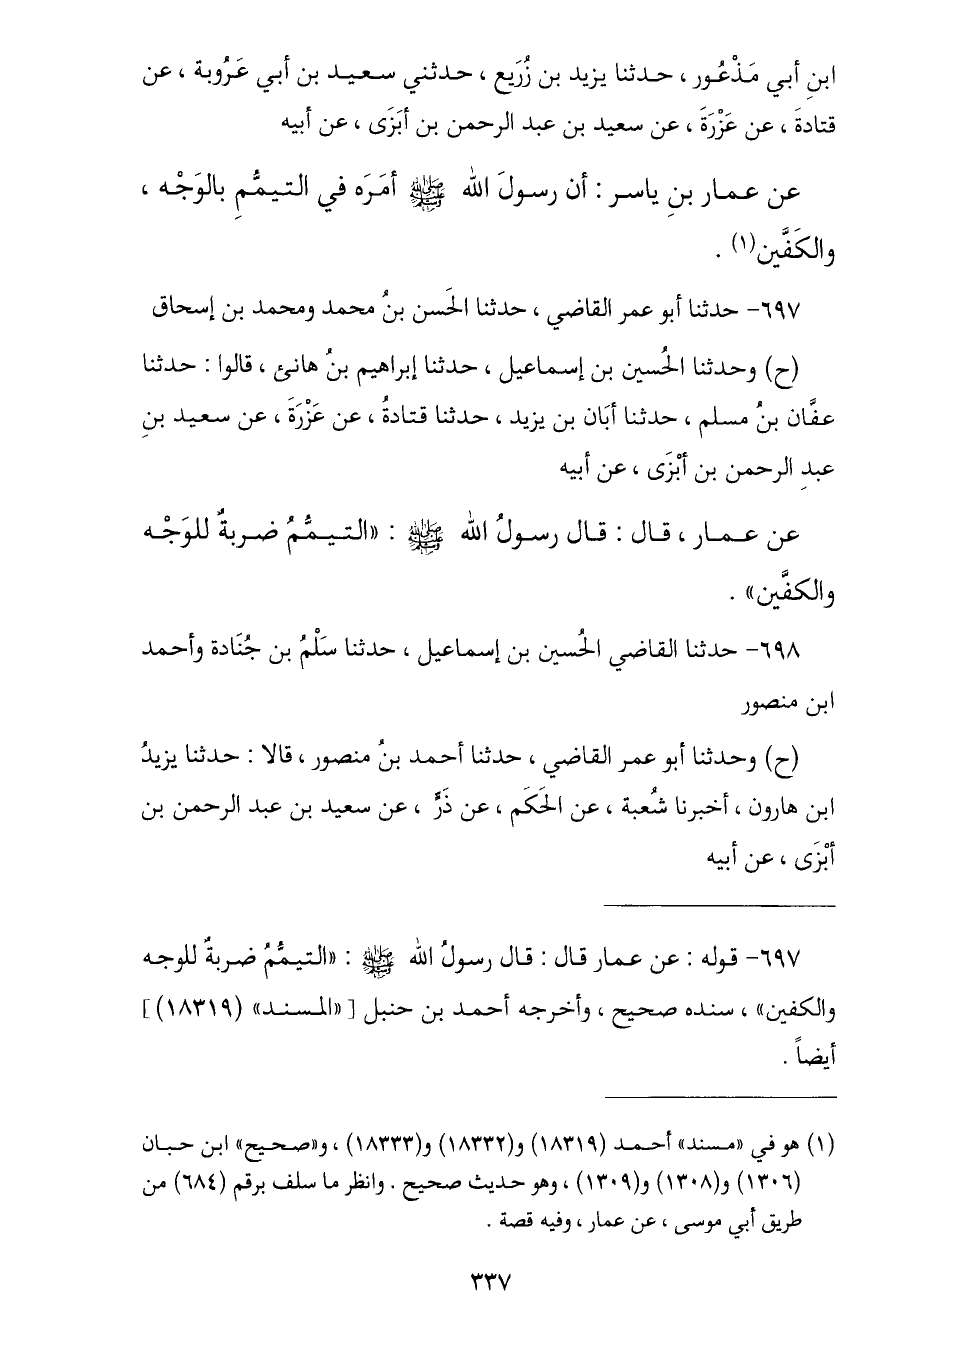 ابنِ أبي مَذْعُور ، حدثنا يزيد بن زُرَيع ، حدثني سعيد بن أبي عَرُوبة ، عن
قتادةَ ، عن عَزْرَةَ ، عن سعيد بن عبد الرحمن بن أبَزَى ، عن أبيه
عن عمار بنِ ياسر : أن رسولَ الله ﷺ أمَرَه في التيمُّمِ بالوَجْه ،
والكَفَّين(١) .
٦٩٧- حدثنا أبو عمر القاضي ، حدثنا الحَسن بنُ محمد ومحمد بن إسحاق
(ح) وحدثنا الحُسين بن إسماعيل ، حدثنا إبراهيم بنُ هانئ ، قالوا : حدثنا
عفَّان بنُ مسلم ، حدثنا أبَان بن يزيد ، حدثنا قتادةُ ، عن عَزْرَةَ ، عن سعيد بنِ
عبدِ الرحمن بن أبْزَى ، عن أبيه
عن عمار ، قال : قال رسولُ الله ﷺ : «التيمُّمُ ضربةٌ للوَجْه
والكفَّين» .
٦٩٨- حدثنا القاضي الحُسين بن إسماعيل ، حدثنا سَلْمُ بن جُنَادة وأحمد
ابن منصور
(ح) وحدثنا أبو عمر القاضي ، حدثنا أحمد بنُ منصور ، قالا : حدثنا يزيدُ
ابن هارون ، أخبرنا شُعبة ، عن الحَكَم ، عن ذَرٍّ ، عن سعيد بن عبد الرحمن بن
أبْزَى ، عن أبيه
٦٩٧- قوله : عن عمار قال : قال رسولُ الله ﷺ : «التيمُّمُ ضربةٌ للوجه
والكفين» ، سنده صحيح ، وأخرجه أحمد بن حنبل [ «المسند» (١٨٣١٩) ]
أيضاً .
(١) هو في «مسند» أحمد (١٨٣١٩) و(١٨٣٣٢) و(١٨٣٣٣) ، و«صحيح» ابن حبان
(١٣٠٦) و(١٣٠٨) و(١٣٠٩) ، وهو حديث صحيح . وانظر ما سلف برقم (٦٨٤) من
طريق أبي موسى ، عن عمار ، وفيه قصة .
٣٣٧